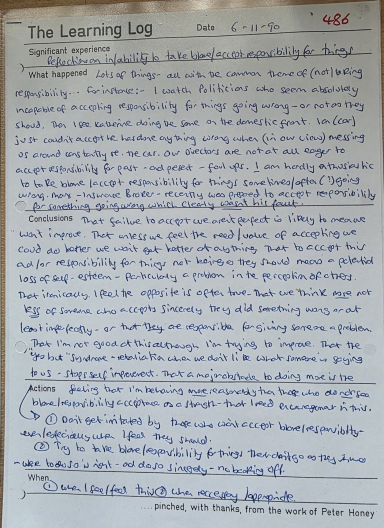 The Learning Log Date 6-11-90 486
Significant experience
Reflection on in/ability to take blame/accept responsibility for things
What happened Lots of things - all with the common theme of (not) taking
responsibility... For instance:- I watch Politicians who seem absolutely
incapable of accepting responsibility for things going wrong - or not as they
should. Then I see Katherine doing the same on the domestic front. Ian (car)
just couldn't accept he has done anything wrong when (in our view) messing
us around constantly re. the car. Our directors are not at all eager to
accept responsibility for past - and present - foul ups. I am hardly enthusiastic
to take blame/accept responsibility for things sometimes/often (!) going
wrong. - Insurance Broker - recently was prepared to accept responsibility
for something going wrong which clearly wasn't his fault.
Conclusions That failure to accept we aren't perfect is likely to mean we
won't improve. That unless we feel the need/value of accepting we
could do better we won't get better at anything. That to accept this
and/or responsibility for things not being as they should means a potential
loss of self-esteem - particularly a problem in the perception of others.
That ironically, I feel the opposite is often true. That we think more not
less of someone who accepts sincerely they did something wrong or at
least imperfectly - or that they are responsible for giving someone a problem.
That I'm not good at this although I'm trying to improve. That the
"Yes but" syndrome - retaliation when we don't like what someone is saying
to us - stops self improvement. That a major obstacle to doing more is the
Actions feeling that I'm behaving more reasonably than those who don't see
blame/responsibility acceptance as a strength - that I need encouragement in this.
① Don't get irritated by those who won't accept blame/responsibility -
even/especially when I feel they should.
② Try to take blame/responsibility for things that don't go as they should
- where to do so is right - and do so sincerely - no backing off.
When
① When I see/feel this ② when necessary/appropriate.
.... pinched, with thanks, from the work of Peter Honey